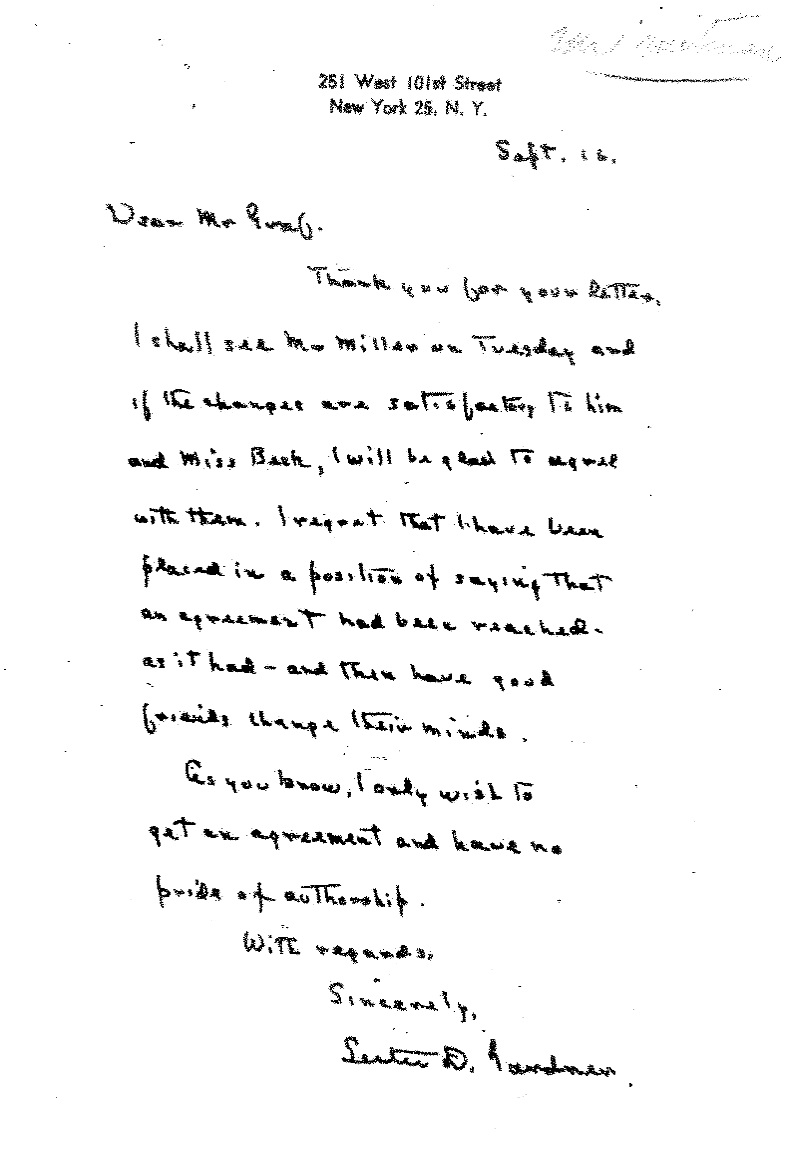 251 West 101st Street
New York 25, N. Y.
Sept. 16.
Dear Mr Graf.
Thank you for your letter.
I shall see Mr Miller on Tuesday and
if the changes are satisfactory to him
and Miss Beck, I will be glad to agree
with them. I regret that I have been
placed in a position of saying that
an agreement had been reached-
as it had - and then have good
friends change their minds.
As you know, I only wish to
get an agreement and have no
pride of authorship.
With regards,
Sincerely,
Lester D. Gardner.